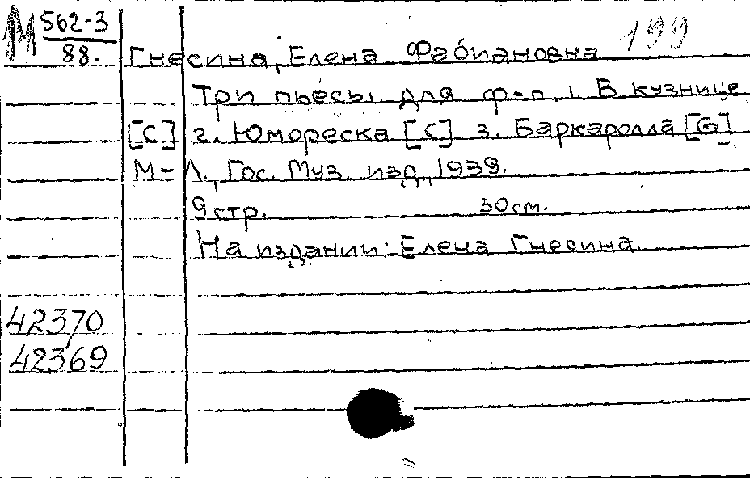 М 562-3
88. Гнесина, Елена Фабиановна 199
Три пьесы для ф-п. 1. В кузнице
[C] 2. Юмореска [C] 3. Баркаролла [G]
М-Л., Гос. Муз. изд., 1939.
9 стр. 30 см.
На издании: Елена Гнесина.
42370
42369